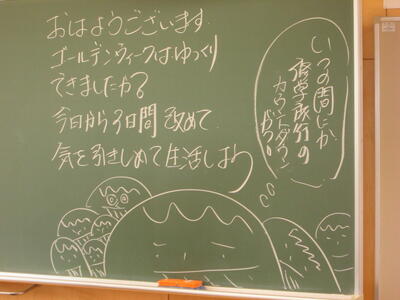 おはようございます。
ゴールデンウィークはゆっくり
できましたか?
今日から3日間 改めて
気を引きしめて生活しよう
いつの間にか
修学旅行の
カウントダウン
が